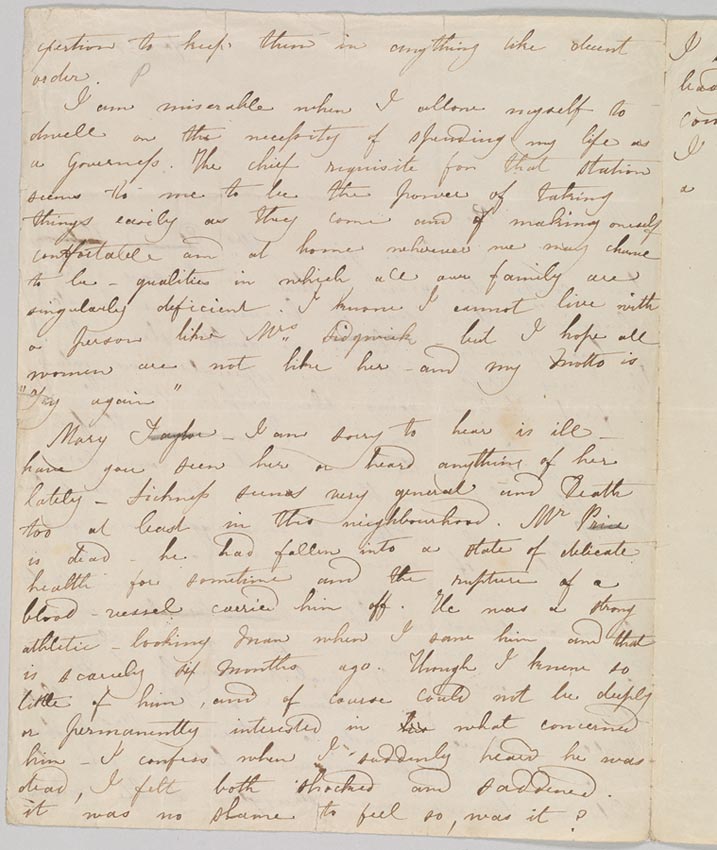 exertion to keep them in anything like decent
order.
I am miserable when I allow myself to
dwell on the necessity of spending my life as
a Governess. The chief requisite for that station
seems to me to be the power of taking
things easily as they come and of making oneself
comfortable and at home wherever we may chance
to be - qualities in which all our family are
singularly deficient. I know I cannot live with
a person like Mrs Sidgwick - but I hope all
women are not like her - and my motto is
"Try again"
Mary Taylor - I am sorry to hear is ill -
have you seen her or heard anything of her
lately - Sickness seems very general and Death
too at least in this neighbourhood. Mr Price
is dead - he had fallen into a state of delicate
health for sometime and the rupture of a
blood-vessel carried him off. He was a strong
athletic-looking man when I saw him and that
is scarcely six months ago. Though I knew so
little of him, and of course could not be deeply
or permanently interested in what concerned
him - I confess when I suddenly heard he was
dead, I felt both shocked and saddened.
it was no shame to feel so, was it?
I
lead
com
I
a